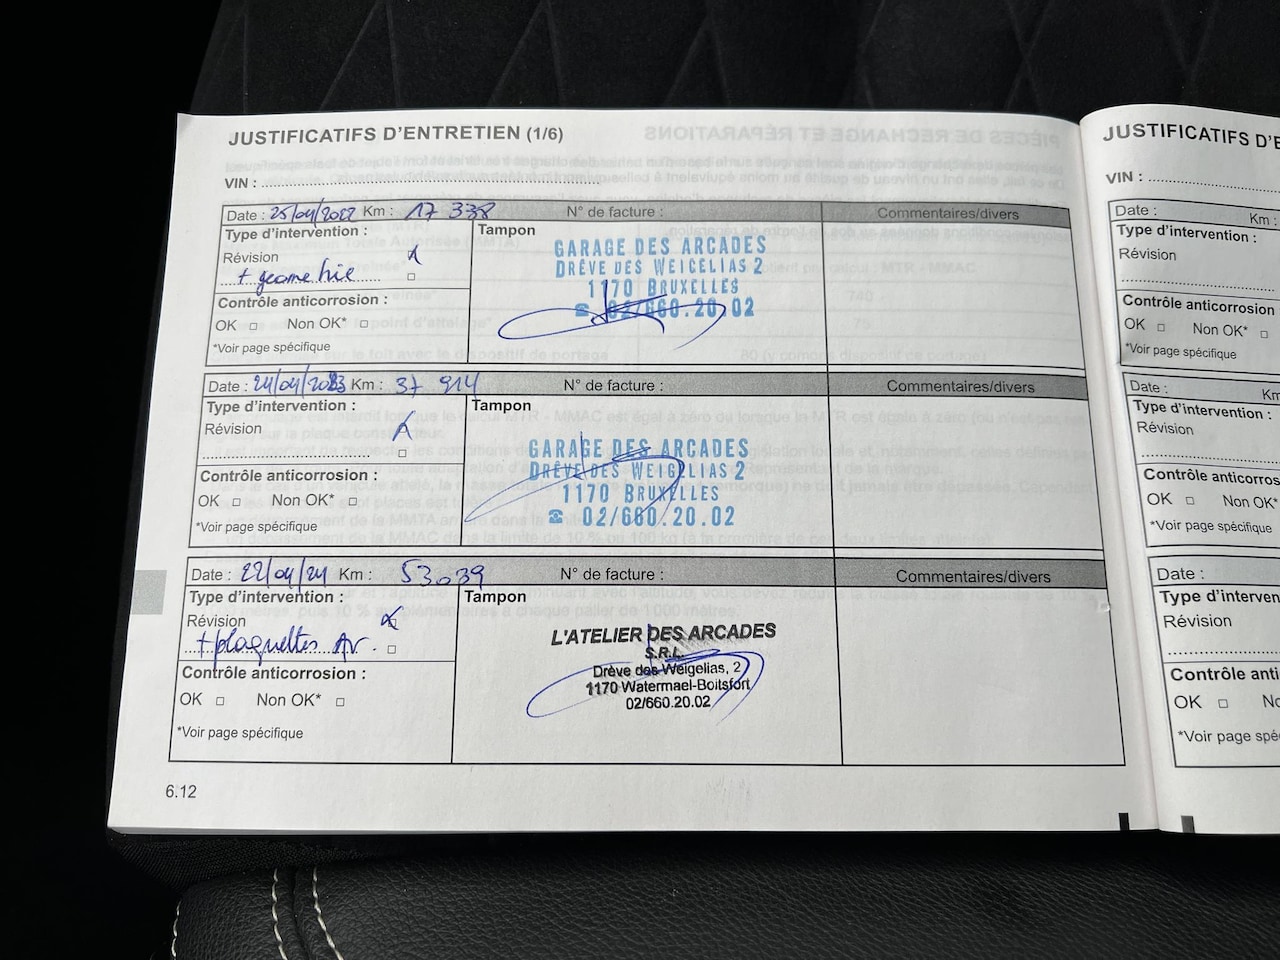 JUSTIFICATIFS D'ENTRETIEN (1/6)
VIN :
Date : 25/04/2022 Km : 17 338 N° de facture : Commentaires/divers
Type d'intervention : Tampon
Révision
+ geometrie
Contrôle anticorrosion :
OK □ Non OK* □
*Voir page spécifique
GARAGE DES ARCADES
DRÈVE DES WEIGELIAS 2
1170 BRUXELLES
☎ 02/660.20.02
Date : 24/04/2023 Km : 37 914 N° de facture : Commentaires/divers
Type d'intervention : Tampon
Révision
Contrôle anticorrosion :
OK □ Non OK* □
*Voir page spécifique
GARAGE DES ARCADES
DRÈVE DES WEIGELIAS 2
1170 BRUXELLES
☎ 02/660.20.02
Date : 22/04/24 Km : 53039 N° de facture : Commentaires/divers
Type d'intervention : Tampon
Révision
+ plaquettes Av.
Contrôle anticorrosion :
OK □ Non OK* □
*Voir page spécifique
L'ATELIER DES ARCADES
S.R.L.
Drève des Weigelias, 2
1170 Watermael-Boitsfort
02/660.20.02
6.12
JUSTIFICATIFS D'E
VIN :
Date : Km :
Type d'intervention :
Révision
Contrôle anticorrosion
OK □ Non OK* □
*Voir page spécifique
Date : Km
Type d'intervention :
Révision
Contrôle anticorros
OK □ Non OK*
*Voir page spécifique
Date :
Type d'interven
Révision
Contrôle anti
OK □ No
*Voir page spé